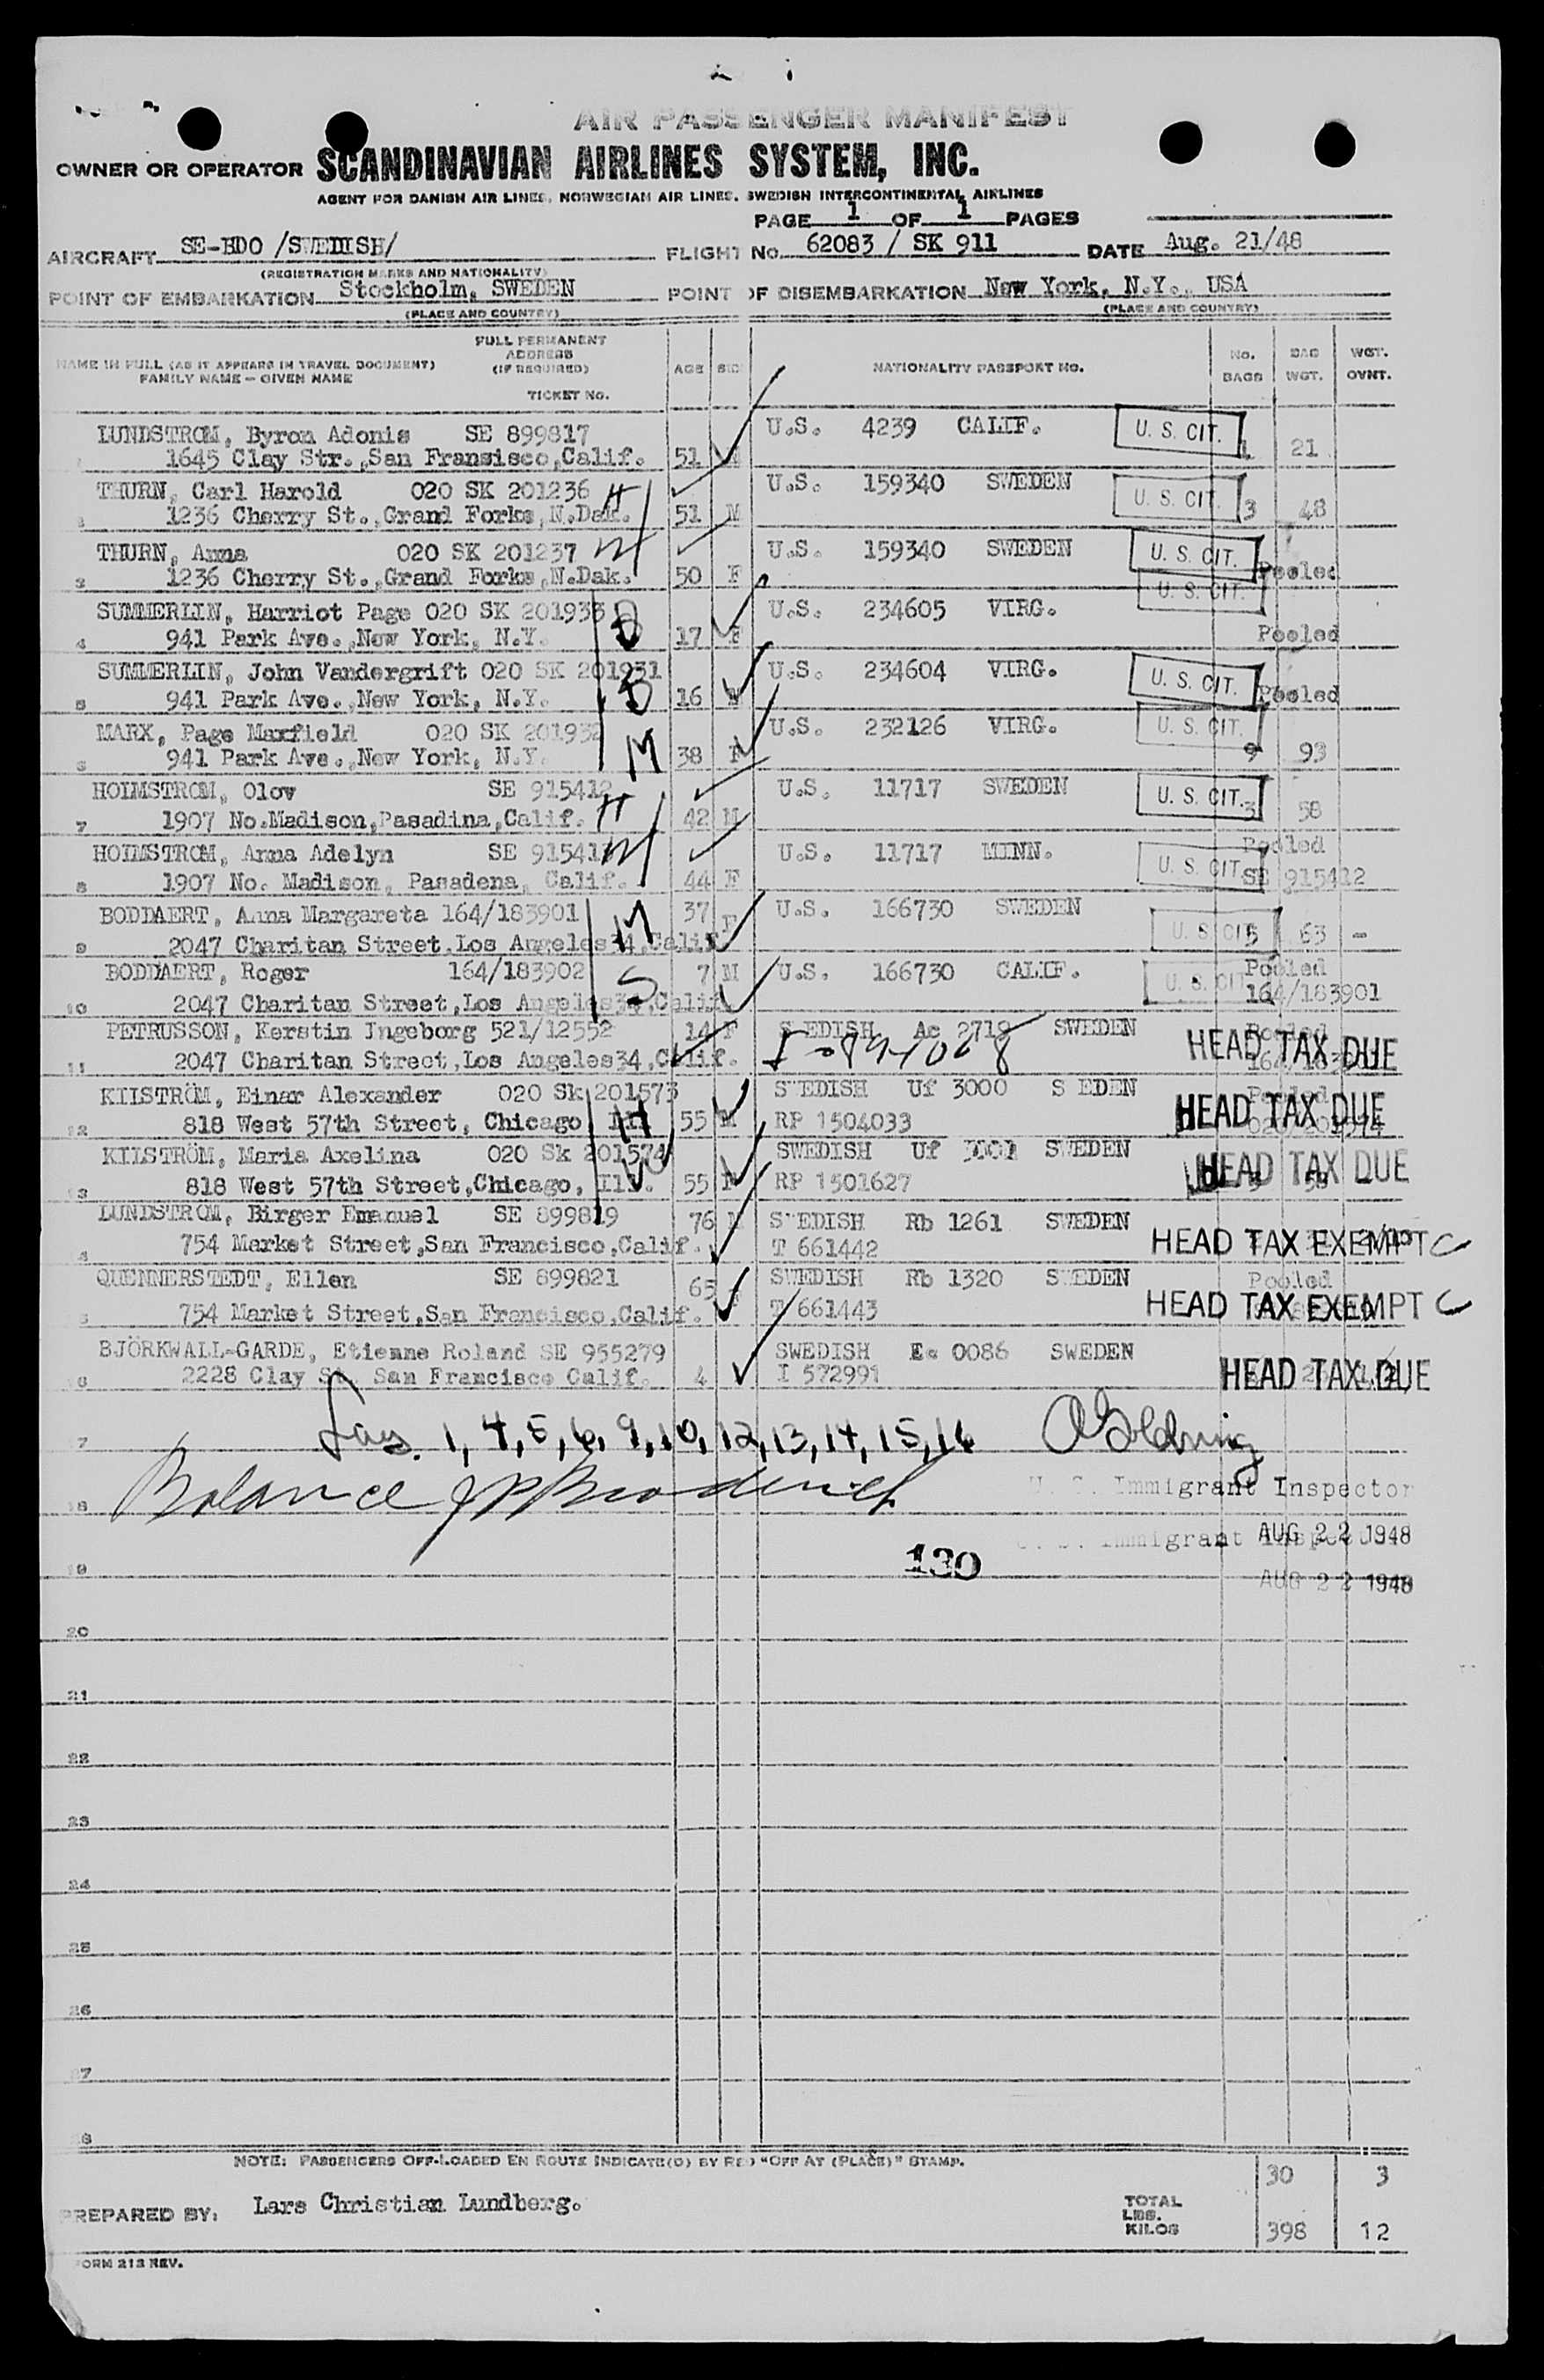 AIR PASSENGER MANIFEST
OWNER OR OPERATOR SCANDINAVIAN AIRLINES SYSTEM, INC.
AGENT FOR DANISH AIR LINES, NORWEGIAN AIR LINES, SWEDISH INTERCONTINENTAL AIRLINES
PAGE 1 OF 1 PAGES
AIRCRAFT SE-BDO /SWEDISH/ FLIGHT No. 62083 / SK 911 DATE Aug. 21/48
(REGISTRATION MARKS AND NATIONALITY)
POINT OF EMBARKATION Stockholm, SWEDEN POINT OF DISEMBARKATION New York, N.Y., USA
(PLACE AND COUNTRY) (PLACE AND COUNTRY)
NAME IN FULL (AS IT APPEARS IN TRAVEL DOCUMENT) FAMILY NAME — GIVEN NAME FULL PERMANENT ADDRESS (IF REQUIRED) TICKET No. AGE SEX NATIONALITY PASSPORT No. No. BAGS BAG WGT. WGT. OVNT.
LUNDSTROM, Byron Adonis SE 899817 U.S. 4239 CALIF. U. S. CIT.
1645 Clay Str.,San Fransisco,Calif. 51 M 1 21
THURN, Carl Harold 020 SK 201236 H U.S. 159340 SWEDEN U. S. CIT.
2 1236 Cherry St.,Grand Forks,N.Dak. 51 M 3 48
THURN, Anna 020 SK 201237 W U.S. 159340 SWEDEN U. S. CIT.
3 1236 Cherry St.,Grand Forks,N.Dak. 50 F Pooled
SUMMERLIN, Harriot Page 020 SK 201933 D U.S. 234605 VIRG. U. S. CIT.
4 941 Park Ave.,New York, N.Y. 17 F Pooled
SUMMERLIN, John Vandergrift 020 SK 201931 U.S. 234604 VIRG. U. S. CIT.
5 941 Park Ave.,New York, N.Y. 16 M Pooled
MARX, Page Maxfield 020 SK 201932 M U.S. 232126 VIRG. U. S. CIT.
6 941 Park Ave.,New York, N.Y. 38 F 9 93
HOLMSTROM, Olov SE 915412 H U.S. 11717 SWEDEN U. S. CIT.
7 1907 No.Madison,Pasadina,Calif. 42 M 3 58
HOLMSTROM, Anna Adelyn W U.S. 11717 MINN. U. S. CIT. Pooled
8 1907 No. Madison, Pasadena, Calif. 44 F SE 915412
BODDAERT, Anna Margareta 164/183901 M 37 F U.S. 166730 SWEDEN
9 2047 Charitan Street,Los Angeles34,Calif. U. S. CIT. 5 63 -
BODDAERT, Roger 164/183902 S 7 M U.S. 166730 CALIF. U. S. CIT. Pooled
10 2047 Charitan Street,Los Angeles34,Calif. 164/183901
PETRUSSON, Kerstin Ingeborg 521/12552 14 F SWEDISH Ac 2719 SWEDEN Pooled
11 2047 Charitan Street,Los Angeles34,Calif. HEAD TAX DUE
KILSTRÖM, Einar Alexander 020 Sk 201573 SWEDISH Uf 3000 SWEDEN Pooled
12 818 West 57th Street, Chicago, Ill. H 55 M RP 1504033 HEAD TAX DUE
KILSTRÖM, Maria Axelina 020 Sk 201574 W SWEDISH Uf 3001 SWEDEN
13 818 West 57th Street,Chicago, Ill. 55 F RP 1501627 HEAD TAX DUE
LUNDSTROM, Birger Emanuel SE 899819 76 M SWEDISH Rb 1261 SWEDEN
754 Market Street,San Francisco,Calif. T 661442 HEAD TAX EXEMPT C
QUENNERSTEDT, Ellen SE 899821 65 F SWEDISH Rb 1320 SWEDEN Pooled
754 Market Street,San Francisco,Calif. T 661443 HEAD TAX EXEMPT C
BJÖRKWALL-GARDE, Etienne Roland SE 955279 SWEDISH Ec 0086 SWEDEN
16 2228 Clay St. San Francisco Calif. 4 I 572991 HEAD TAX DUE
1, 4, 5, 6, 9, 10, 12, 13, 14, 15, 16 Goldring
Balance J P Broderick U. S. Immigrant Inspector
18
U. S. Immigrant Inspector AUG 22 1948
130
19 AUG 22 1948
20
21
22
23
24
25
26
27
28
NOTE: PASSENGERS OFF-LOADED EN ROUTE INDICATE(D) BY RED "OFF AT (PLACE)" STAMP.
30 3
PREPARED BY: Lars Christian Lundberg. TOTAL LBS. KILOS 398 12
FORM 213 REV.